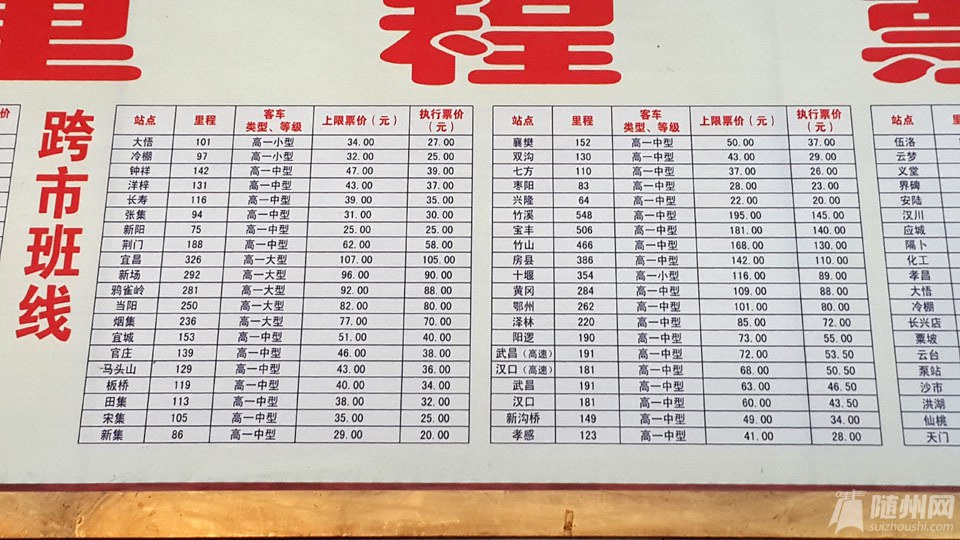 里 程 票
跨市班线
站点 里程 客车类型、等级 上限票价（元） 执行票价（元）
大悟 101 高一小型 34.00 27.00
冷棚 97 高一小型 32.00 25.00
钟祥 142 高一中型 47.00 39.00
洋梓 131 高一中型 43.00 37.00
长寿 116 高一中型 39.00 35.00
张集 94 高一中型 31.00 30.00
新阳 75 高一中型 25.00 25.00
荆门 188 高一中型 62.00 58.00
宜昌 326 高一大型 107.00 105.00
新场 292 高一大型 96.00 90.00
鸦雀岭 281 高一大型 92.00 88.00
当阳 250 高一大型 82.00 80.00
烟集 236 高一大型 77.00 70.00
宜城 153 高一中型 51.00 40.00
官庄 139 高一中型 46.00 38.00
马头山 129 高一中型 43.00 36.00
板桥 119 高一中型 40.00 34.00
田集 113 高一中型 38.00 32.00
宋集 105 高一中型 35.00 25.00
新集 86 高一中型 29.00 20.00
站点 里程 客车类型、等级 上限票价（元） 执行票价（元）
襄樊 152 高一中型 50.00 37.00
双沟 130 高一中型 43.00 29.00
七方 110 高一中型 37.00 26.00
枣阳 83 高一中型 28.00 23.00
兴隆 64 高一中型 22.00 20.00
竹溪 548 高一中型 195.00 145.00
宝丰 506 高一中型 181.00 140.00
竹山 466 高一中型 168.00 130.00
房县 386 高一中型 142.00 110.00
十堰 354 高一小型 116.00 89.00
黄冈 284 高一中型 109.00 88.00
鄂州 262 高一中型 101.00 80.00
泽林 220 高一中型 85.00 72.00
阳逻 190 高一中型 73.00 55.00
武昌（高速） 191 高一中型 72.00 53.50
汉口（高速） 181 高一中型 68.00 50.50
武昌 191 高一中型 63.00 46.50
汉口 181 高一中型 60.00 43.50
新沟桥 149 高一中型 49.00 34.00
孝感 123 高一中型 41.00 28.00
站点
伍洛
云梦
义堂
界碑
安陆
汉川
应城
隔卜
化工
孝昌
大悟
冷棚
长兴店
粟坡
云台
泵站
沙市
洪湖
仙桃
天门
随州网
suizhoushi.com